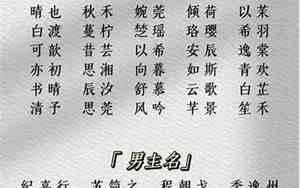 晴也 秋禾 婉莞 倾荷 以茉
白渡 蔓柠 笠瑶 珞璎 希羽
可歆 昔芸 以希 安辰 逸棠
亦初 思湘 向暮 如斯 青欢
书晴 辰汐 舒慕 云歌 白芷
清子 思莞 风吟 芊景 笙禾
「男主名」
纪嘉行 苏简之 程朝戈 季逸州